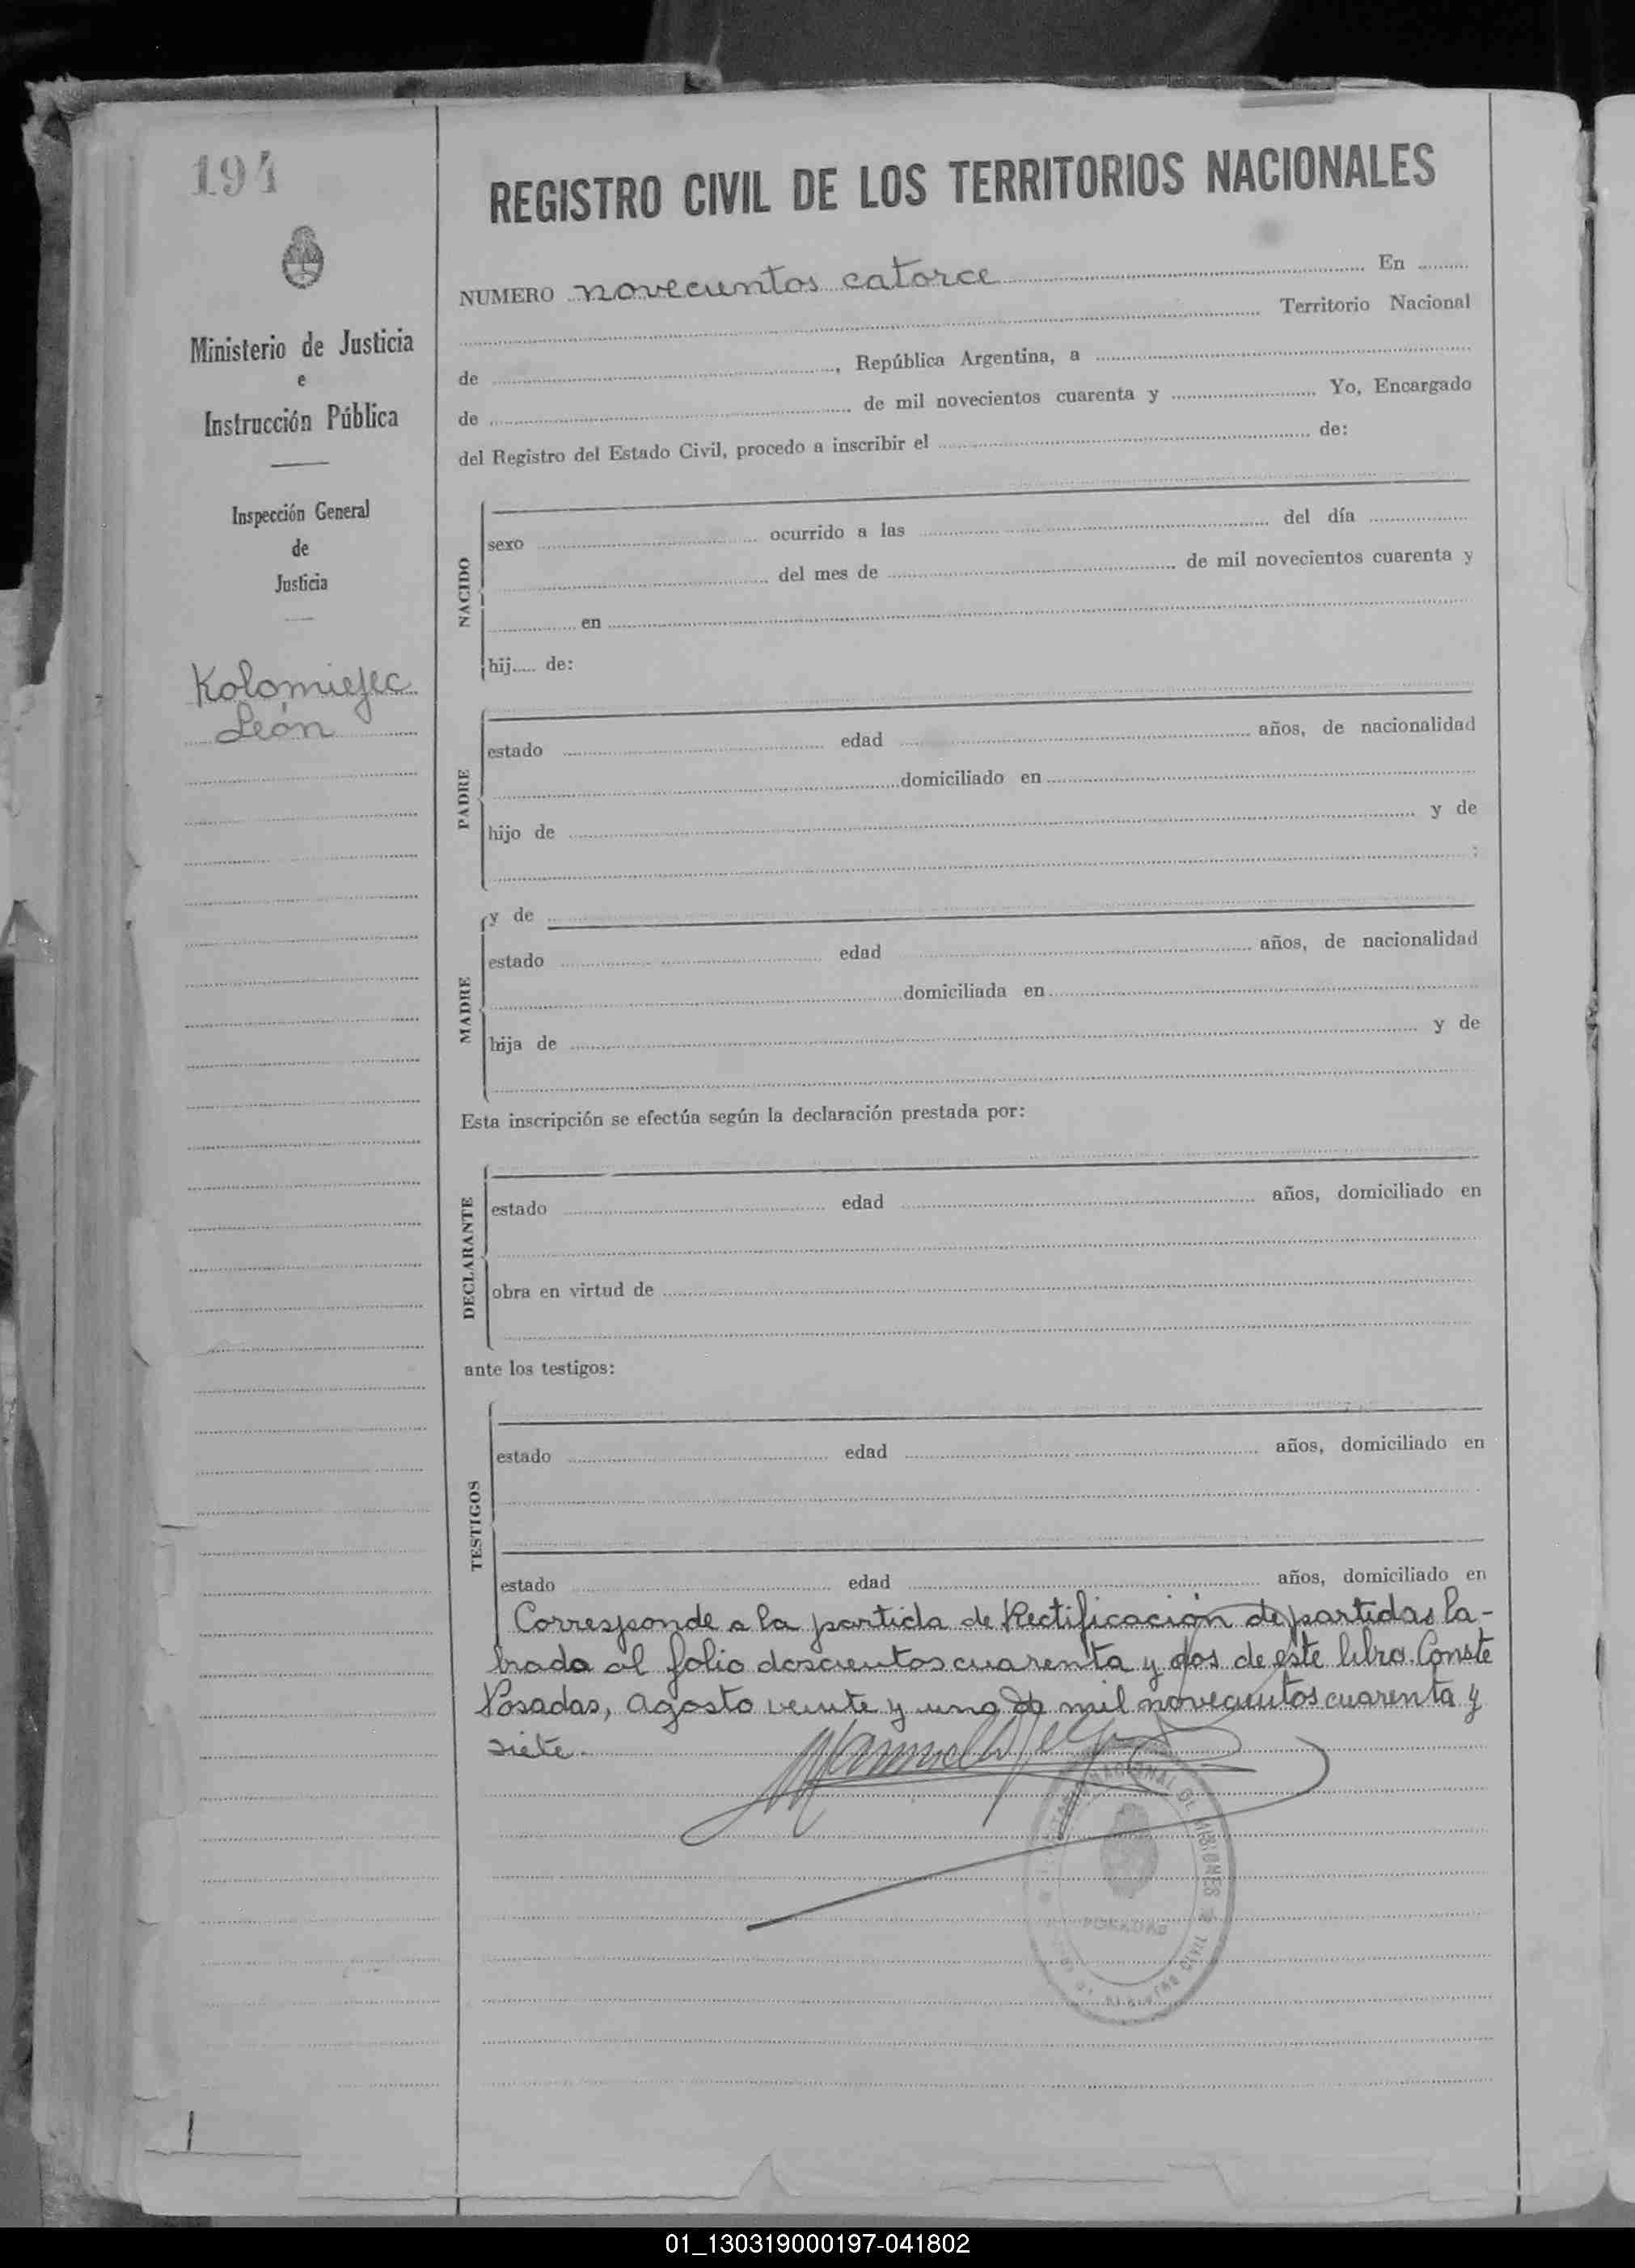 194
Ministerio de Justicia
e
Instrucción Pública
Inspección General
de
Justicia
Kolomiejec
León
REGISTRO CIVIL DE LOS TERRITORIOS NACIONALES
NUMERO novecientos catorce En
Territorio Nacional
de , República Argentina, a
de de mil novecientos cuarenta y Yo, Encargado
del Registro del Estado Civil, procedo a inscribir el de:
NACIDO
sexo ocurrido a las del día
del mes de de mil novecientos cuarenta y
en
hij..... de:
PADRE
estado edad años, de nacionalidad
domiciliado en
hijo de y de
;
MADRE
y de
estado edad años, de nacionalidad
domiciliada en
hija de y de
Esta inscripción se efectúa según la declaración prestada por:
DECLARANTE
estado edad años, domiciliado en
obra en virtud de
ante los testigos:
TESTIGOS
estado edad años, domiciliado en
estado edad años, domiciliado en
Corresponde a la partida de Rectificación de partidas la-
brada al folio doscientos cuarenta y dos de este libro. Conste
Posadas, Agosto veinte y uno de mil novecientos cuarenta y
siete.
NACIONAL DE MISIONES
POSADAS
01_130319000197-041802